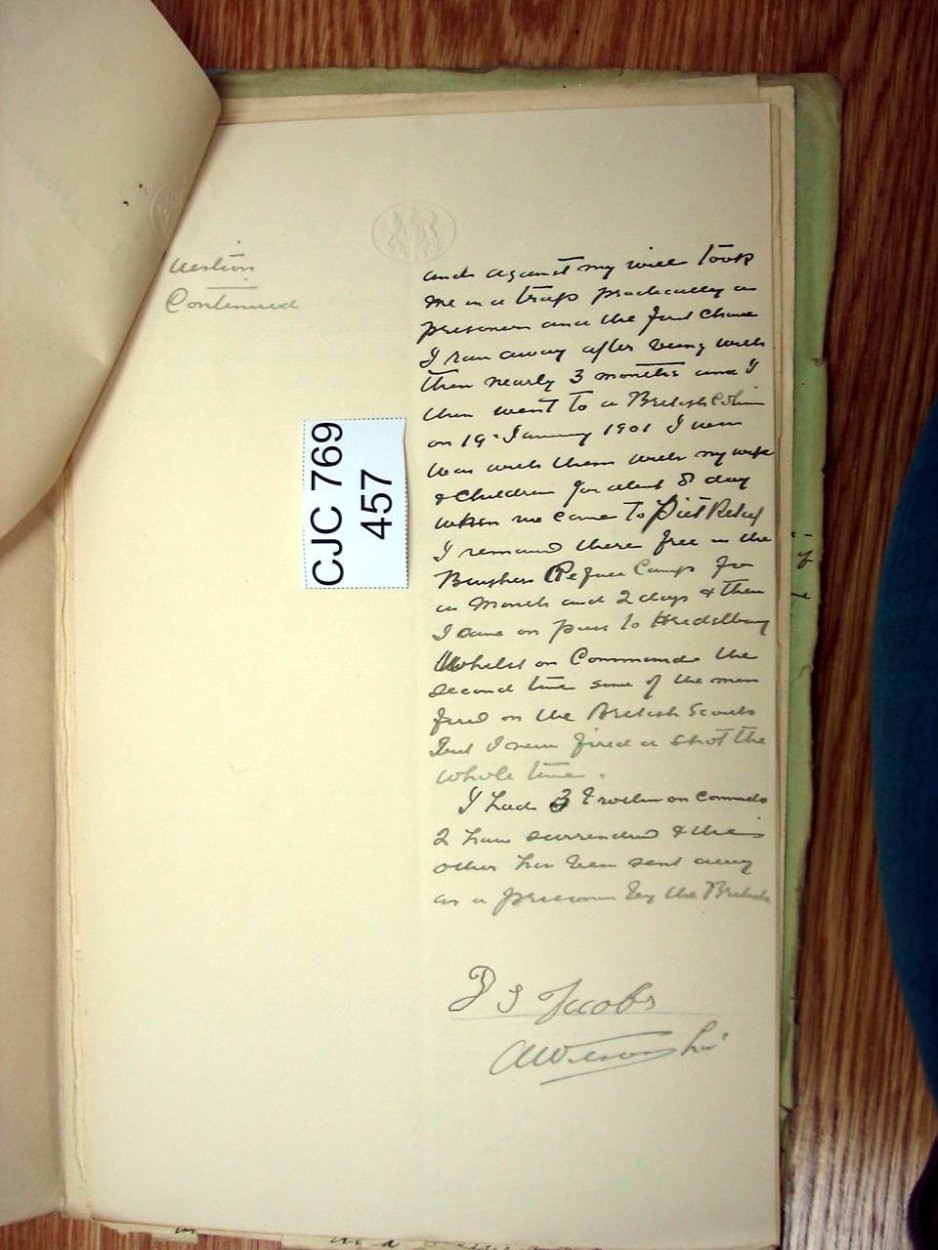 uestion
Continued
CJC 769
457
and against my will took
me in a trap practically as
prisoner and the first chance
I ran away after being with
them nearly 3 months and I
then went to a British
on 19th January 1901 I
was with them with my wife
& children for about 8 day
when we came to Piet Retief
I remand there free in the
Burghers Refuee Camp for
a Month and 2 days & then
I came on pass to Heidelburg
Whilst on Commando the
second time some of the men
fired on the British Scouts
But I never fired a shot the
whole time.
I had 3 on Commdo
2 have surrendred & the
other has been sent away
as a prisoner by the British
Jacobs